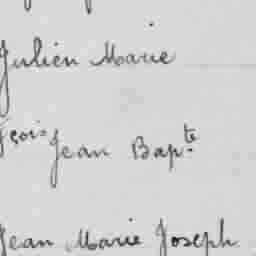 Julien Marie
çois Jean Bapte
Jean Marie Joseph